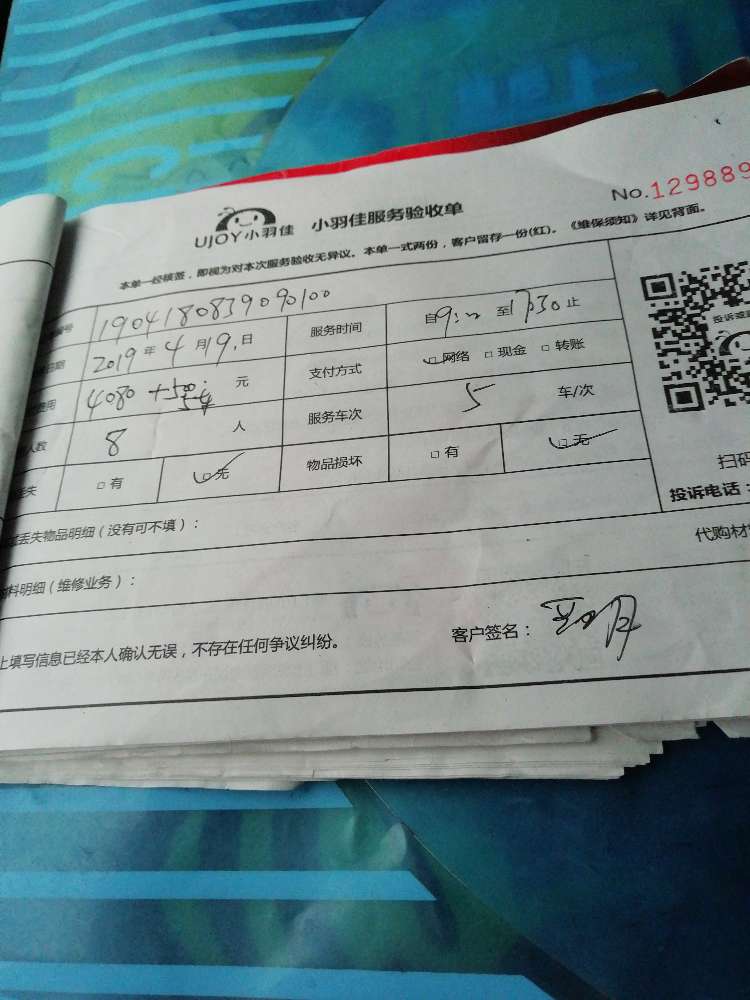 UJOY小羽佳 小羽佳服务验收单
No.129889
本单一经核签，即视为对本次服务验收无异议。本单一式两份，客户留存一份(红)。《维保须知》详见背面。
编号 1904180839090100 服务时间 自9:00 至17:30止
日期 2019年4月19日 支付方式 网络 现金 转账
费用 4080+500 元 服务车次 5 车/次
人数 8 人
丢失 有 无 物品损坏 有 无
丢失物品明细（没有可不填）：
料明细（维修业务）： 代购材
上填写信息已经本人确认无误，不存在任何争议纠纷。 客户签名：
投诉或
扫码
投诉电话：